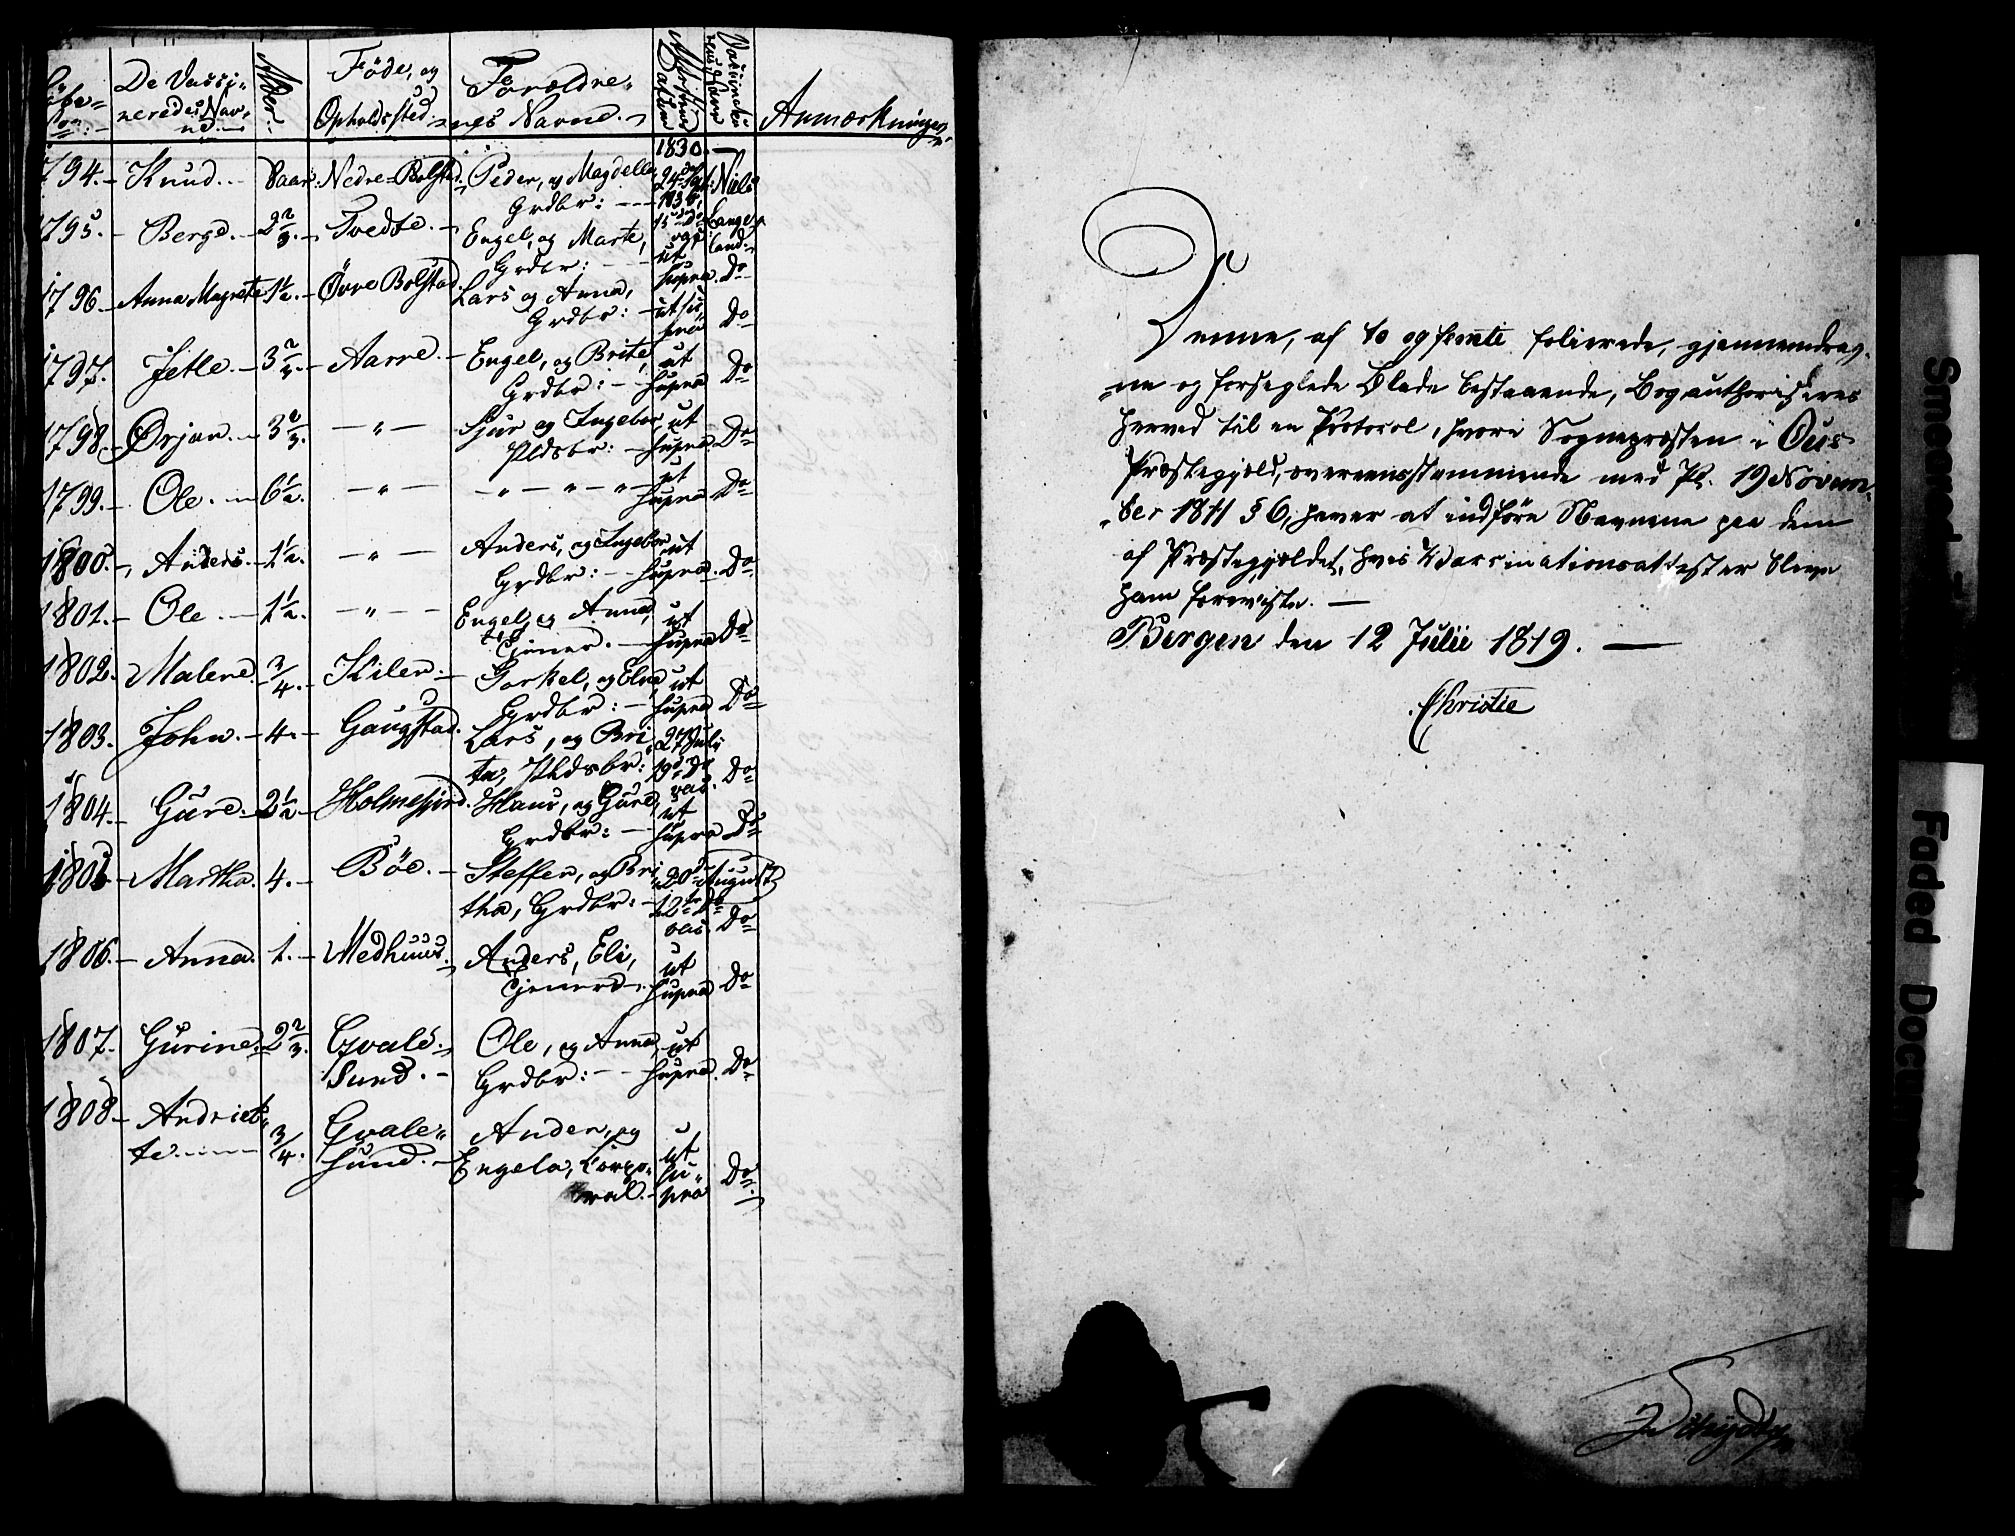 De Vacci-
neredes Nav-
ne
Alder
Føde, og
Opholdssted
Forældre-
nes Navne
Attestens Datum
Anmærkninger
1830.
1794. Knud. 8 aar. Nedre-Bolstad Peder, og Magdella,
Grdbr:
Niels
1795. Berge. 2 2/3. Tvedte. Engel, og Marte,
Grdbr:
Lange-
land.
1796. Anna Magrete 1 1/2. Övre Bolstad Lars og Anna,
Grdbr:
ut supra Do
1797. Jetle. 3 Aarre. Engel, og Brite,
Grdbr: ut supra Do
1798. Ørjan. 3 2/3. — " — Sjur og Ingebor,
Pldsbr: ut supra. Do
1799. Ole. 6 1/2. — " — — " — " — " ut supra Do
1800. Anders. 1 1/2. — " — Anders, og Ingebor,
Grdbr: ut supra. Do
1801. Ole. 1 1/2. — " — Engel, og Anna,
Tjener. ut supra Do
1802. Malene. 3/4. Kilen Torkel, og Elna,
Grdbr: ut supra Do
1803. John. 4. Gaugstad. Lars, og Bri-
ta, Pldsbr: 27 Julii
19de Do vac. Do
1804. Gure. 2 1/2 Holmefjord. Hans, og Gure,
Grdbr: ut supra Do
1805 Martha. 4. Böe. Steffen, og Bri-
tha, Grdbr: 20de August
12te Do
vac. Do
1806. Anna. 1. Medhuus. Anders, Eli,
Tjenere. ut supra Do
1807. Gurine. 2 2/3. Qvale-
Sund. Ole, og Anna,
Grdbr: ut supra. Do
1808 Andriet-
te 3/4. Qvale-
sund. Anders, og
Engela, Corpo-
ral. ut
su-
pra Do
Denne, af to og femti folierede, gjennemdrag-
ne og forseglede Blade bestaaende, Bog authoriseres
herved til en Protocol, hvori Sognepræsten i Ous
Præstegjeld, overeensstemmende med Pl. 19 Novem-
ber 1811 § 6, haver at indføre Navnene paa dem
af Præstegjeldet, hvis Vaccinationsattester blive
ham foreviste. —
Bergen den 12 Julii 1819. —
Christie
Smeared
Faded Document